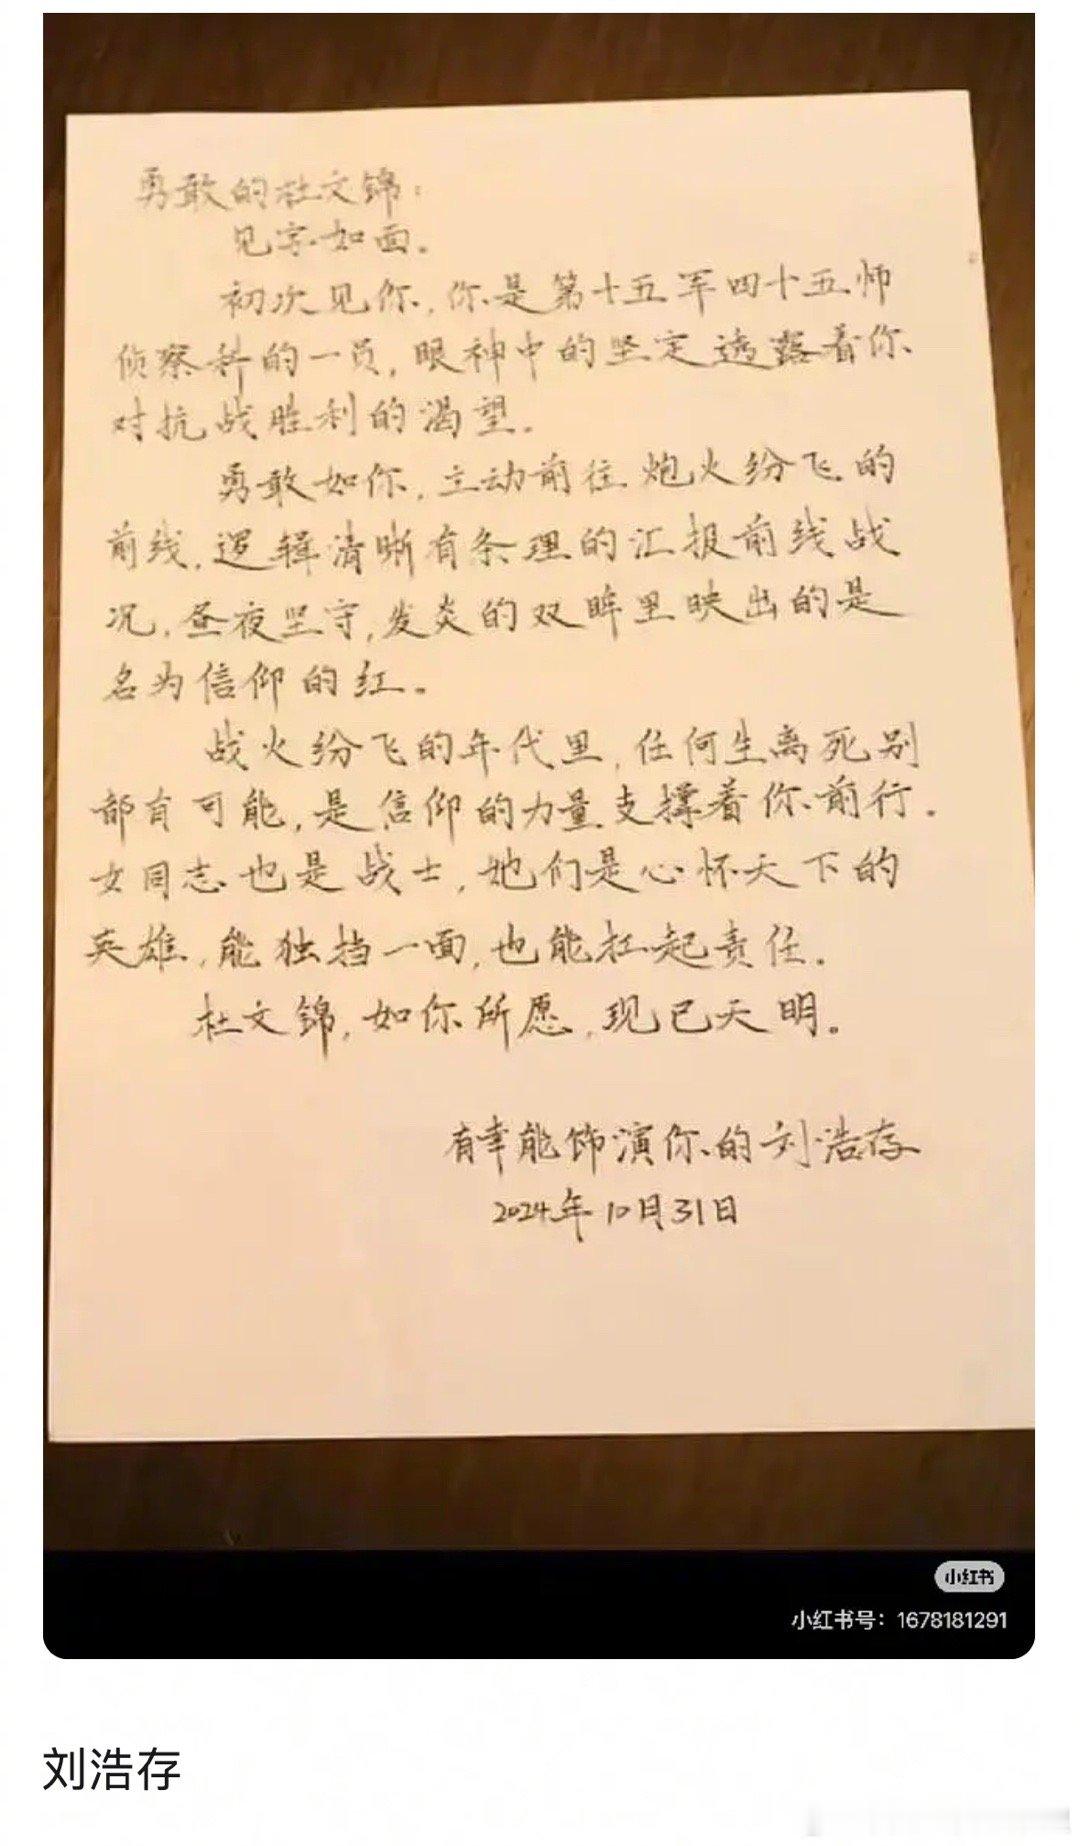 勇敢的杜文锦：
见字如面。
初次见你，你是第十五军四十五师
侦察科的一员，眼神中的坚定透露着你
对抗战胜利的渴望。
勇敢如你，主动前往炮火纷飞的
前线，逻辑清晰有条理的汇报前线战
况，昼夜坚守，发炎的双眸里映出的是
名为信仰的红。
战火纷飞的年代里，任何生离死别
都有可能，是信仰的力量支撑着你前行。
女同志也是战士，她们是心怀天下的
英雄，能独挡一面，也能扛起责任。
杜文锦，如你所愿，现已天明。
有幸能饰演你的刘浩存
2024年10月31日
小红书
小红书号：1678181291
刘浩存